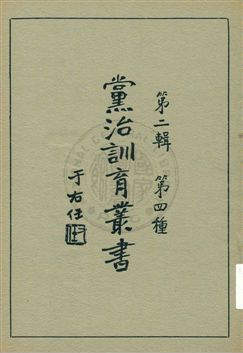 第二輯 第四種
黨治訓育叢書
于右任